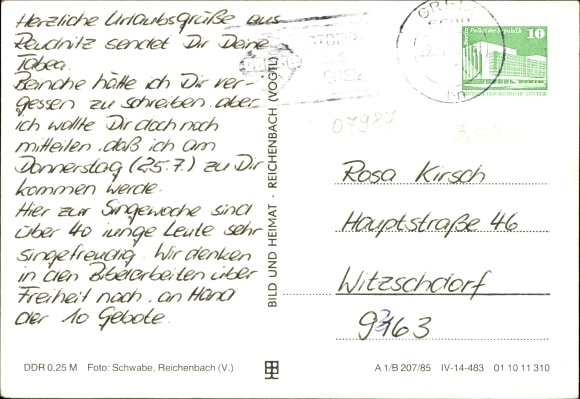 Herzliche Urlaubsgrüße aus
Reudnitz sendet Dir Deine
Tabea.
Beinahe hätte ich Dir ver-
gessen zu schreiben. aber
ich wollte Dir doch noch
mitteilen, daß ich am
Donnerstag (25.7.) zu Dir
kommen werde.
Hier zur Singewoche sind
über 40 junge Leute sehr
singefreudig. Wir denken
in den Bibelarbeiten über
Freiheit nach, an Hand
der 10 Gebote.
BILD UND HEIMAT · REICHENBACH (VOGTL)
Palast der Republik
10
07987
Rosa Kirsch
Hauptstraße 46
Witzschdorf
9363
DDR 0,25 M Foto: Schwabe, Reichenbach (V.)
A 1/B 207/85 IV-14-483 01 10 11 310